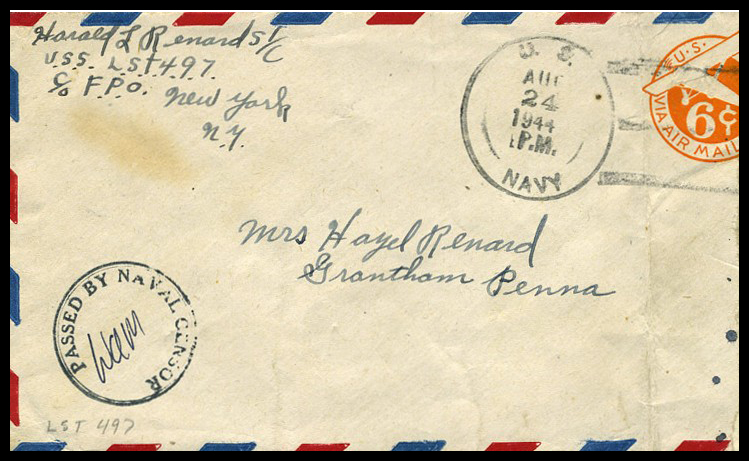 Harald L Renard S1/C
U.S.S. LST 497
c/o F.P.O.
New York
N.Y.
U. S.
AUG
24
1944
P.M.
NAVY
U.S.
6¢
VIA AIR MAIL
Mrs Hazel Renard
Grantham Penna
PASSED BY NAVAL CENSOR
LST 497